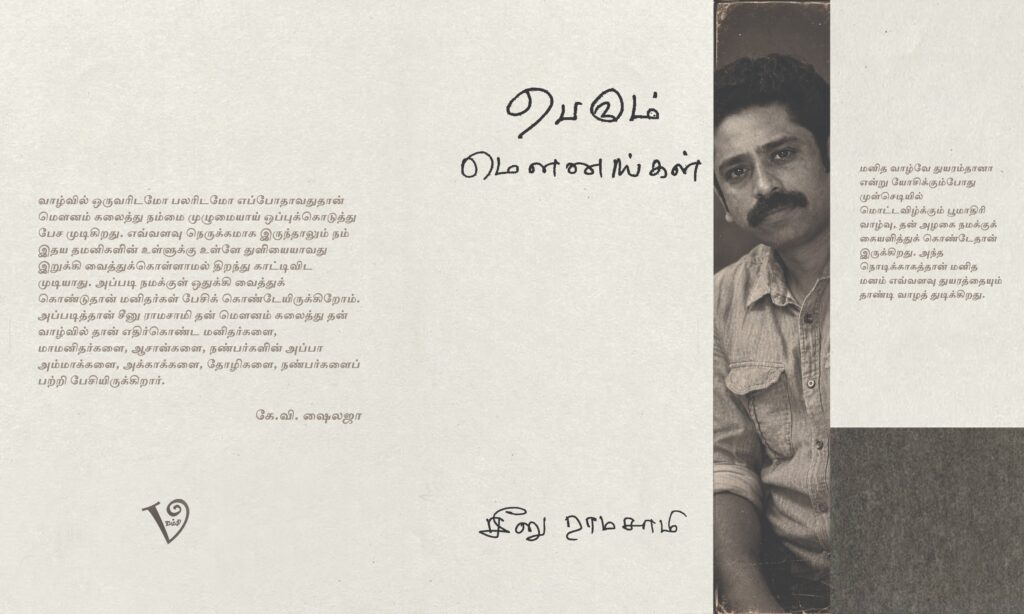 வாழ்வில் ஒருவரிடமோ பலரிடமோ எப்போதாவதுதான்
மௌனம் கலைத்து நம்மை முழுமையாய் ஒப்புக்கொடுத்து
பேச முடிகிறது. எவ்வளவு நெருக்கமாக இருந்தாலும் நம்
இதய தமனிகளின் உள்ளுக்கு உள்ளே துளியையாவது
இறுக்கி வைத்துக்கொள்ளாமல் திறந்து காட்டிவிட
முடியாது. அப்படி நமக்குள் ஒதுக்கி வைத்துக்
கொண்டுதான் மனிதர்கள் பேசிக் கொண்டேயிருக்கிறோம்.
அப்படித்தான் சீனு ராமசாமி தன் மௌனம் கலைத்து தன்
வாழ்வில் தான் எதிர்கொண்ட மனிதர்களை,
மாமனிதர்களை, ஆசான்களை, நண்பர்களின் அப்பா
அம்மாக்களை, அக்காக்களை, தோழிகளை, நண்பர்களைப்
பற்றி பேசியிருக்கிறார்.
கே.வி. ஷைலஜா
பெரும்
மௌனங்கள்
சீனு ராமசாமி
மனித வாழ்வே துயரம்தானா
என்று யோசிக்கும்போது
முள்செடியில்
மொட்டவிழ்க்கும் பூமாதிரி
வாழ்வு, தன் அழகை நமக்குக்
கையளித்துக் கொண்டேதான்
இருக்கிறது. அந்த
நொடிக்காகத்தான் மனித
மனம் எவ்வளவு துயரத்தையும்
தாண்டி வாழத் துடிக்கிறது.